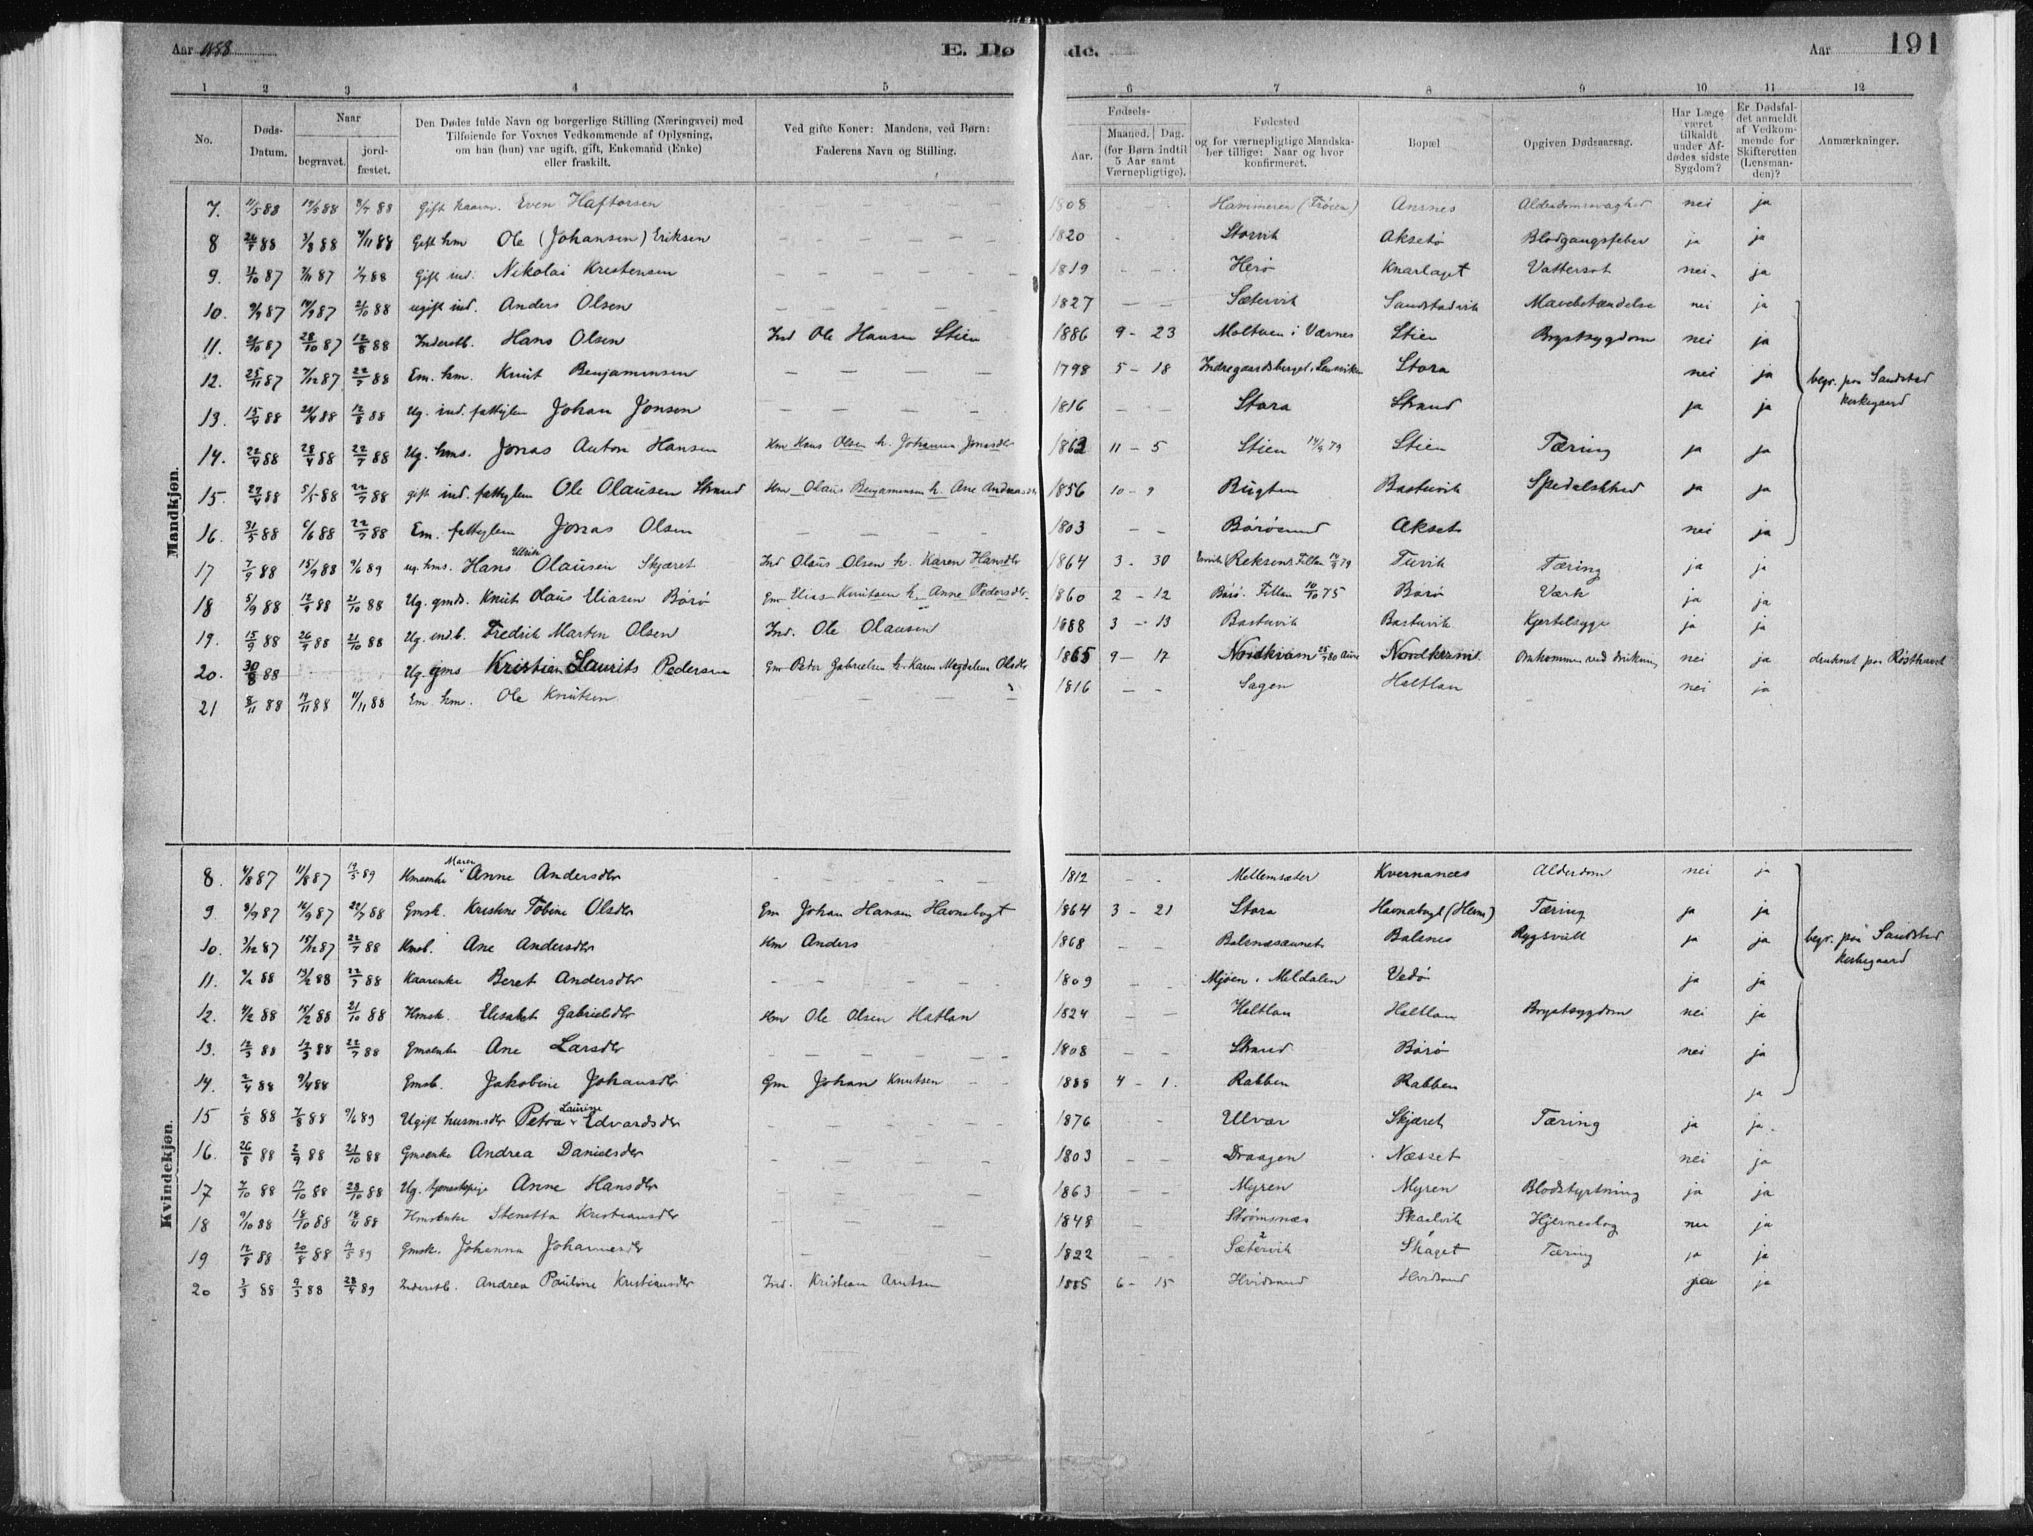 Aar 1888 E. Døde. Aar 191
1 2 3 4 5 6 7 8 9 10 11 12
No. Døds-Datum. Naar begravet. jordfæstet. Den Dødes fulde Navn og borgerlige Stilling (Næringsvei) med Tilføiende for Voxnes Vedkommende af Oplysning, om han (hun) var ugift, gift, Enkemand (Enke) eller fraskilt. Ved gifte Koner: Mandens, ved Børn: Faderens Navn og Stilling. Fødsels- Aar. Maaned. Dag. (for Børn indtil 5 Aar samt Værnepligtige). Fødested og for værnepligtige Mandskaber tillige: Naar og hvor konfirmeret. Bopæl Opgiven Dødsaarsag. Har Læge været tilkaldt under Afdødes sidste Sygdom? Er Dødsfaldet anmeldt af Vedkommende for Skifteretten (Lensmanden)? Anmærkninger.
Mandkjøn.
7. 11/5 88 19/5 88 88 Gift kaarm. Even Haftorsen 1808 Hammeren (Frøien) Ansnes Alderdomssvaghed nei ja
8 26/7 88 3/8 88 9/11 88 Gift hm Ole (Johansen) Eriksen 1820 Storvik Aksetø Blodgangsfeber ja ja
9. 87 87 88 Gift ind. Nikolai Kristensen 1819 Herø Knarlaget Vattersot nei ja
10. 9/9 87 19/9 87 21/10 88 ugift ind. Anders Olsen 1827 Sætervik Sandstadvik Mavebetændelse nei ja
11. 21/10 87 28/10 87 12/8 88 Inderstb. Hans Olsen Ind Ole Hansen Stien 1886 9 - 23 Moltuen i Værnes Stien Brystsygdom nei ja
12. 25/11 87 7/12 87 22/7 88 Em. hm. Knut Benjaminsen 1798 5 - 18 Indregaardsberget, Lensviken Stora nei ja begr. paa Sandstad Kirkegaard
13. 15/4 88 20/4 88 12/8 88 Ug. ind. fattiglem Johan Jonsen 1816 Stora Strand ja ja
14. 22/4 88 28/4 88 22/7 88 Ug. hms. Jonas Anton Hansen Hm Hans Olsen h. Johanna Jonasdtr 1862 11 - 5 Stien 79 Stien Tæring ja ja
15. 27/4 88 5/5 88 22/7 88 gift ind. fattiglem Ole Olausen Strand Hm Olaus Benjaminsen h. Ane Andreasdtr 1856 10 - 9 Bugten Bastuvik Spedalskhed ja ja
16. 31/5 88 6/6 88 22/7 88 Em. fattiglem Jonas Olsen 1803 Børøsund Akset nei ja
17 7/9 88 15/9 88 9/6 89 ug. hms. Hans Ulrik Olausen Skjæret Ind Olaus Olsen h. Karen Hansdtr 1864 3 - 30 Reksen, Fillan 79 Tuvik Tæring ja ja
18 5/9 88 12/9 88 21/10 88 Ug. gmds. Knut Olaus Eliasen Børø Gm Elias Knutsen h. Anne Pedersdtr 1860 2 - 12 Børø. Fillan 10/10 75 Børø Værk ja ja
19. 15/9 88 26/9 88 21/10 88 Ug. indb. Fredrik Martin Olsen Ind. Ole Olausen 1888 3 - 13 Bastuvik Bastuvik Kjertelsyge ja ja
20. 30/8 88 Ug. gms Kristian Laurits Pedersen Gm Peder Gabrielsen h. Karen Magdalena Olsdtr 1865 9 - 17 Nordkvam 80 Nordkvam Omkommen ved drukning nei ja druknet paa Røsthavet
21 8/11 88 17/11 88 11/11 88 Em. hm. Ole Knutsen 1816 Sagen Haltlan nei ja
Kvindekjøn.
8. 4/8 87 11/8 87 89 Hmsenke Maren Anne Andersdtr 1812 Mellemsæter Kvernanæs Alderdom nei ja
9. 8/9 87 16/9 87 22/7 88 Gmsk. Kristine Tobine Olsdtr Gm Johan Hansen Havnebogt 1864 3 - 21 Stora Havnebogt (Hevn) Tæring ja ja
10. 3/12 87 15/12 87 22/7 88 Kmsb. Ane Andersdtr Hm Anders 1868 Balsnæsaunet Balsnes Rygsvull ja ja begr. paa Sandstad Kirkegaard
11. 9/2 88 19/2 88 22/7 88 Kaarenke Beret Andersdtr 1809 Mjøen, Meldalen Vedø ja ja
12. 9/2 88 19/2 88 21/10 88 Hmsk. Elisabet Gabrielsdtr Hm Ole Olsen Hatlan 1824 Haltlan Haltlan Brystsygdom nei ja
13. 12/3 88 17/3 88 22/7 88 Gmsenke Ane Larsdtr 1808 Strand Børø nei ja
14. 2/4 88 9/4 88 Gmsb. Jakobine Johansdtr Gm Johan Knutsen 1888 4 - 1. Rabben Rabben ja
15 1/8 88 7/8 88 9/6 89 Ugift husmsdtr Petra Laurine Edvardsdtr 1876 Ulvær Skjæret Tæring ja ja
16. 26/8 88 2/9 88 21/10 88 Gmsenke Andrea Danielsdtr 1803 Draagen Næsset nei ja
17 7/10 88 17/10 88 28/10 88 Ug. tjenestepige Anne Hansdtr 1863 Myren Myren Blodstyrtning ja ja
18 9/10 88 18/10 88 88 Hmsenke Stenetta Kristiansdtr 1848 Strømsnæs Skaalvik Hjerneslag nei ja
19 12/8 88 20/8 88 89 Gmsk. Johanna Johannesdtr 1822 Sætervik Skaget Tæring ja ja
20 3/3 88 9/3 88 28/4 89 Inderstb. Andrea Pauline Kristiansdtr Ind. Kristian Arntsen 1885 6 - 15 Hvidsund Hvidsund ja